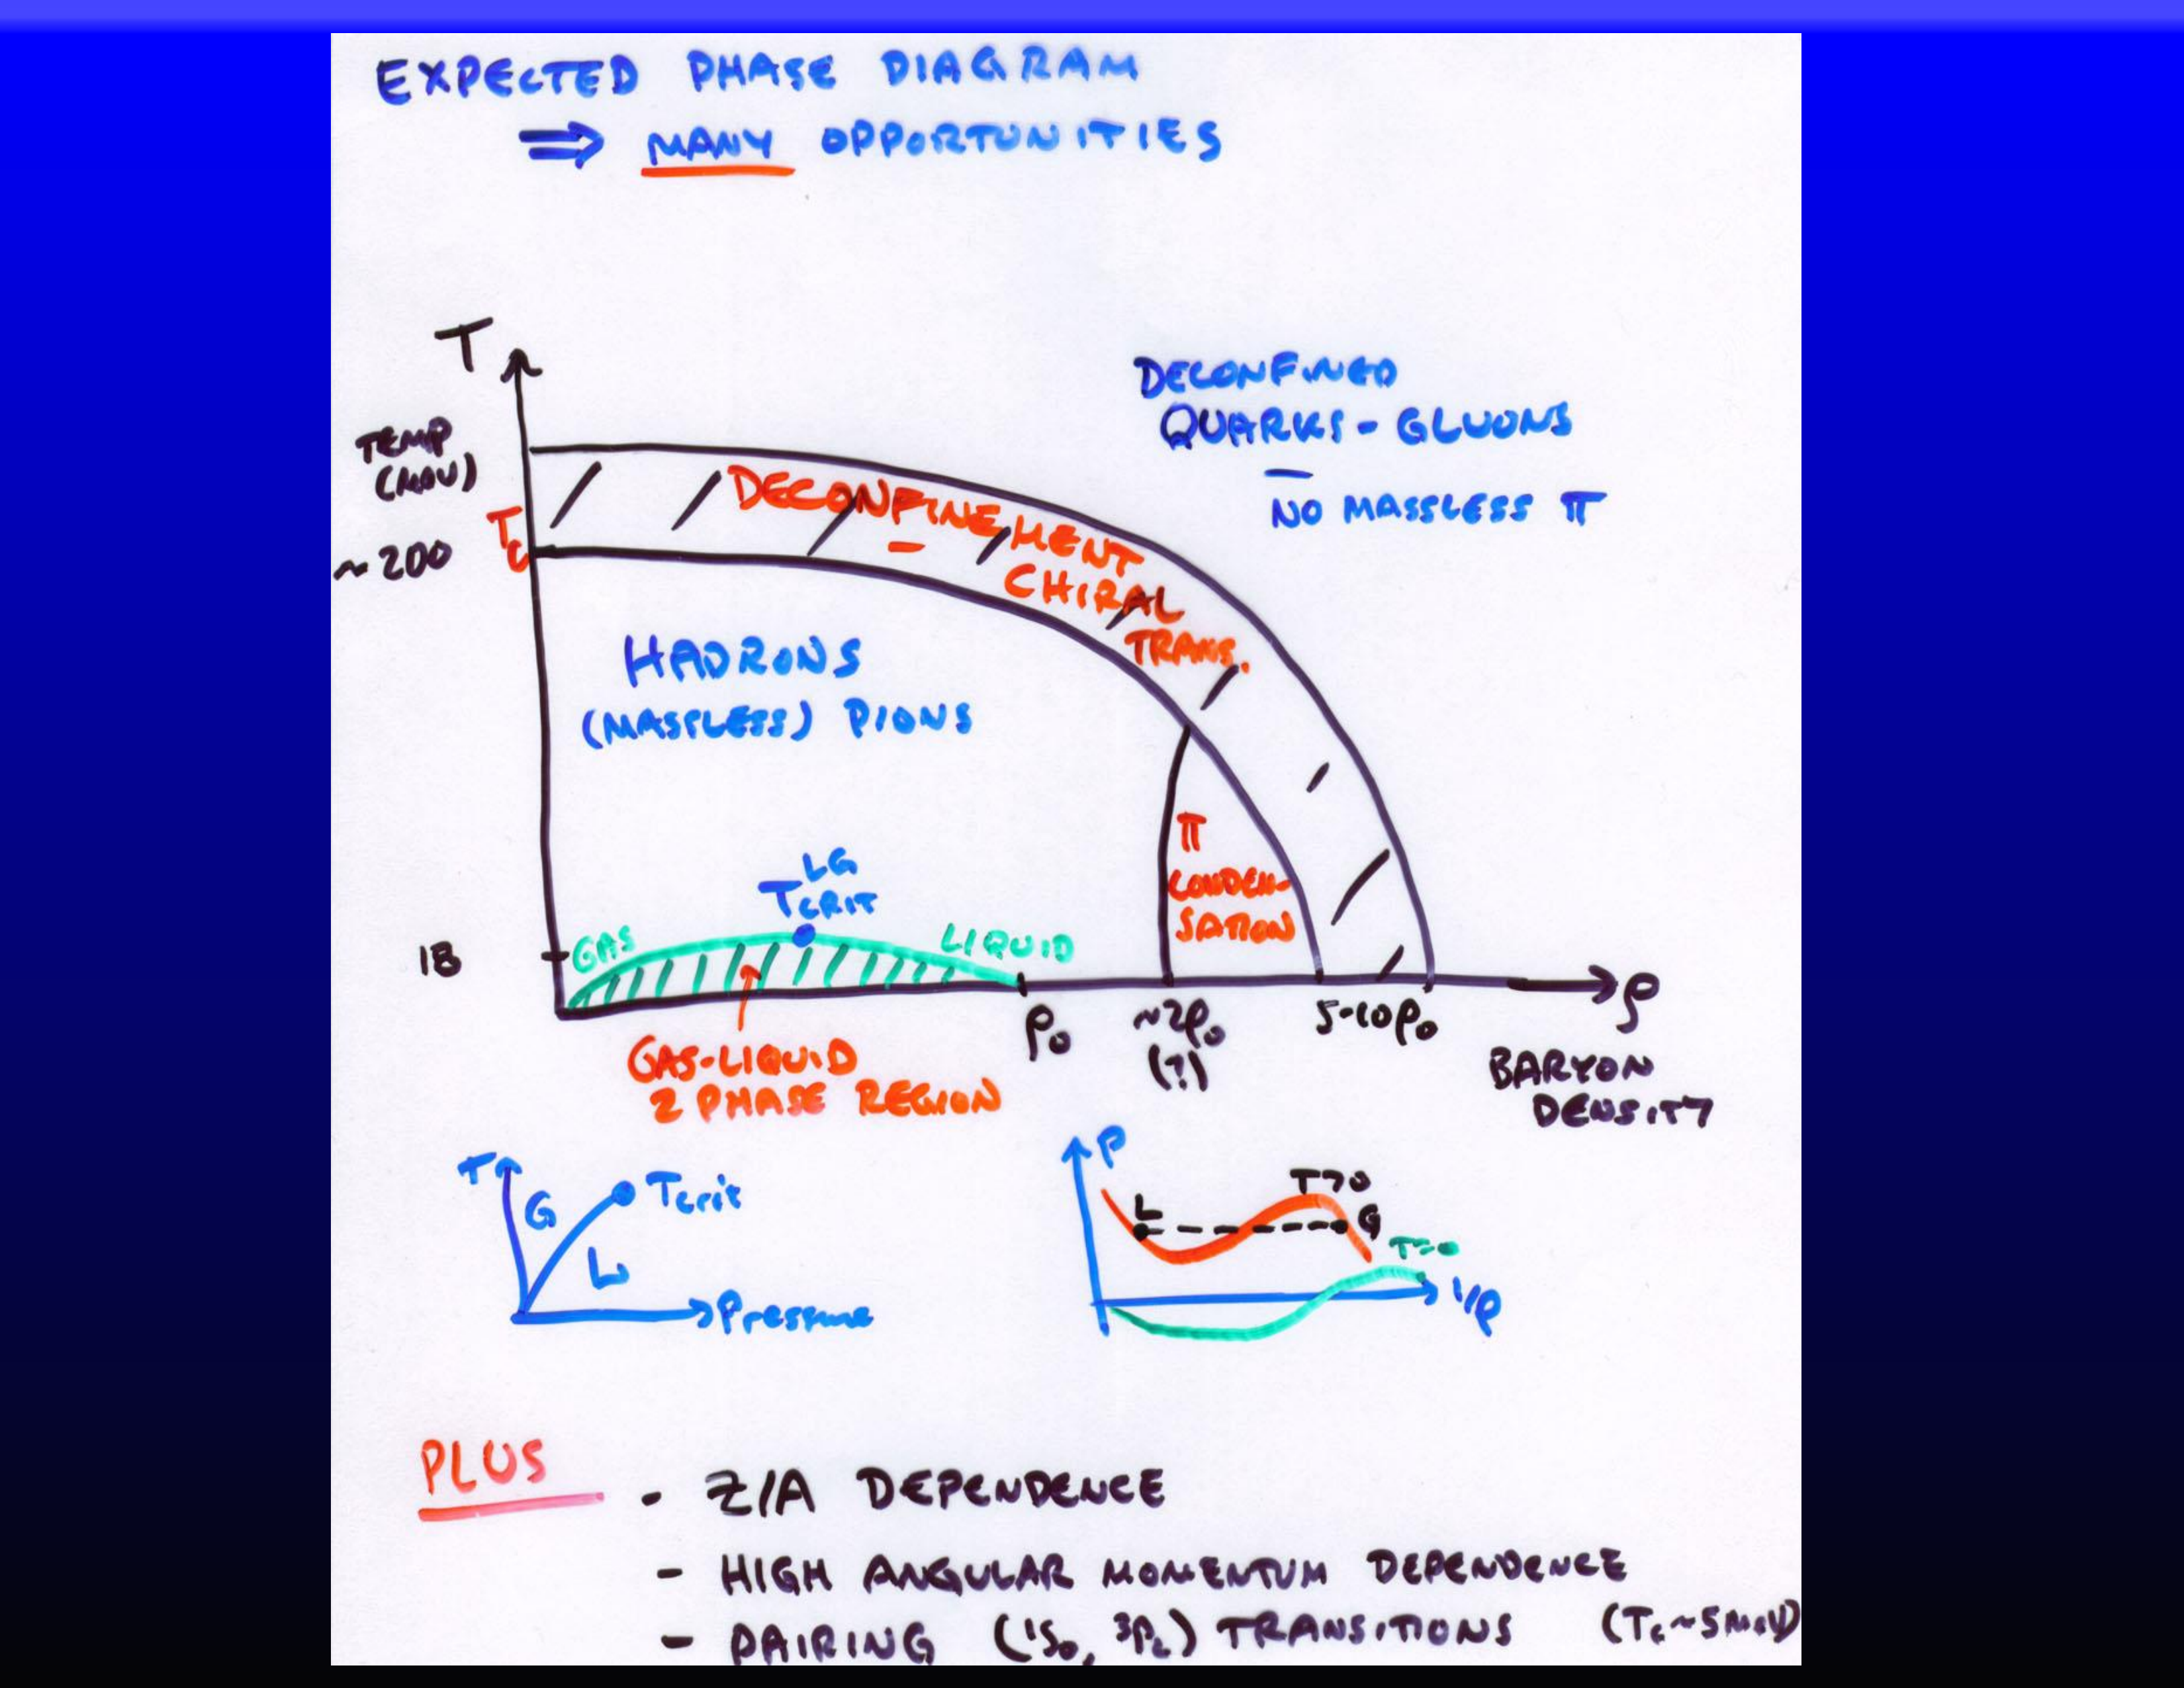 EXPECTED PHASE DIAGRAM
⇒ MANY OPPORTUNITIES
T
TEMP
(MeV)
Tc
~200
DECONFINED
QUARKS - GLUONS
NO MASSLESS π
DECONFINEMENT
CHIRAL
TRANS.
HADRONS
(MASSLESS) PIONS
π
CONDEN-
SATION
LG
TCRIT
18
GAS
LIQUID
ρ
ρ₀
~2ρ₀
(?)
5-10ρ₀
BARYON
DENSITY
GAS-LIQUID
2 PHASE REGION
T
G
Tcrit
L
Pressure
P
T>0
L
G
T=0
1/ρ
PLUS
- Z/A DEPENDENCE
- HIGH ANGULAR MOMENTUM DEPENDENCE
- PAIRING (¹S₀, ³P₂) TRANSITIONS (Tc~5MeV)